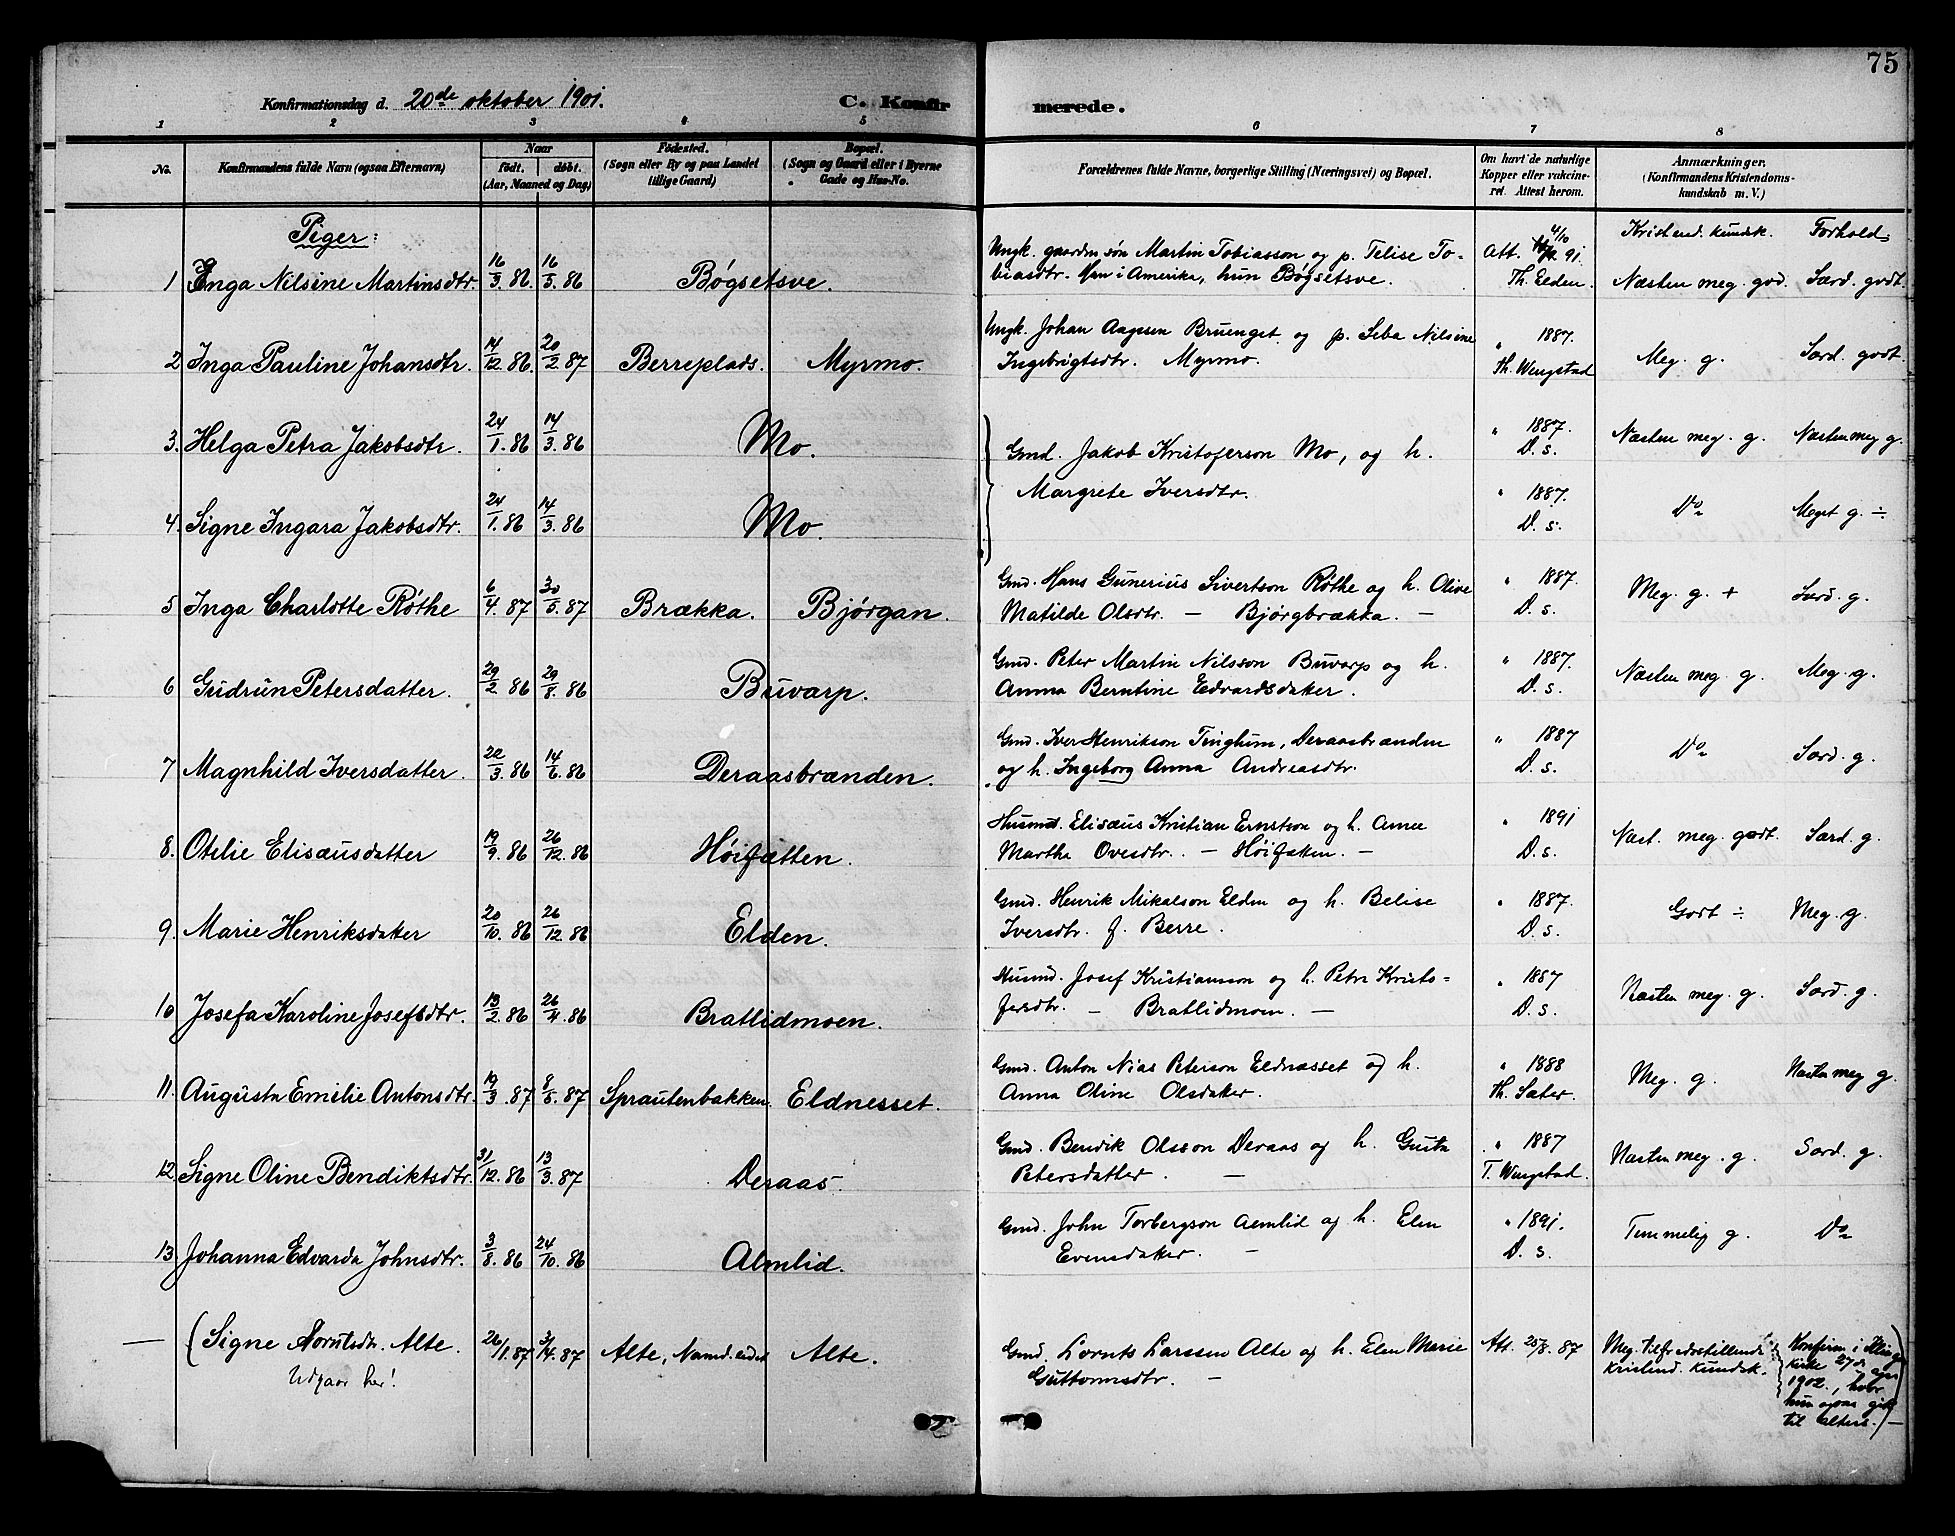 75
Konfirmationsdag d. 20de oktober 1901. C. Konfirmerede.
1 2 3 4 5 6 7 8
No. Konfirmandens fulde Navn (ogsaa Efternavn)
Naar født. døbt. (Aar, Maaned og Dag)
Fødested. (Sogn eller By og paa Landet tillige Gaard)
Bopæl. (Sogn og Gaard eller i Byerne Gade og Hus-No.
Forældrenes fulde Navne, borgerlige Stilling (Næringsvei) og Bopæl.
Om havt de naturlige Kopper eller vakcineret. Attest herom.
Anmærkninger. (Konfirmandens Kristendomskundskab m. V.)
Piger: Kristend. kundsk. Forhold
1 Inga Nilsine Martinsdtr. 16/3. 86 16/5. 86 Bøgsetsve. Ungk. gaardm. søn Martin Tobiasson og p. Telise To-
biasdtr. Han i Amerika, hun Bøgsetsve. Att. 4/10 91. Th. Elden. Næsten meg. god. Særd. godt.
2 Inga Pauline Johansdtr. 14/12. 86 20/2. 87 Berreplads. Myrmo. Ungk. Johan Aagesen Bruenget og p. Seba Nilsine
Ingebrigtsdtr. Myrmo. " 1887. Th. Wengstad Meg. g. Særd. godt.
3. Helga Petra Jakobsdtr. 24/1. 86 14/3. 86 Mo. Gmd. Jakob Kristoferson Mo, og h.
Margrete Iversdtr. " 1887. D. s. Næsten meg. g. Næsten meg g.
4. Signe Ingara Jakobsdtr. 24/1. 86 14/3. 86 Mo. " 1887. D. s. Do Meget g. ÷
5 Inga Charlotte Røthe 6/4. 87 30/5. 87 Brækka. Bjørgan. Gmd. Hans Gunerius Sivertson Røthe og h. Olive
Matilde Olsdtr. — Bjørgbrækka. — " 1887. D. s. Meg. g. + Særd. g.
6 Gudrun Petersdatter. 29/2. 86 29/8. 86 Buvarp. Gmd. Peter Martin Nilsson Buvarp og h.
Anna Berntine Edvardsdatter. " 1887. D. s. Næsten meg. g. Meg. g.
7 Magnhild Iversdatter. 22/3. 86 14/6. 86 Deraasbrænden. Gmd. Iver Henrikson Tinghum, Deraasbrænden
og h. Ingeborg Anna Andreasdtr. " 1887 D. s. Do Særd. g.
8. Otelie Elisæusdatter 19/9. 86 26/12. 86 Høifætten. Husmd. Elisæus Kristian Ernstson og h. Anne
Martha Ovesdtr. — Høifætten. — " 1891 D. s. Næst. meg. godt. Særd. g.
9. Marie Henriksdatter 20/10. 86 26/12. 86 Elden. Gmd. Henrik Mikalson Elden og h. Belise
Iversdtr. f. Berre. " 1887. D. s. Godt ÷ Meg. g.
10 Josefa Karoline Josefsdtr. 13/2. 86 26/4. 86 Bratlidmoen. Husmd. Josef Kristianson og h. Petra Kristo-
fersdtr. — Bratlidmoen. — " 1887 D. s. Næsten meg. g. Særd. g.
11. Augusta Emilie Antonsdtr. 19/3. 87 8/5. 87 Sprautenbakken. Eldnesset. Gmd. Anton Nias Peterson Eldnæsset og h.
Anna Oline Olsdatter. " 1888 Th. Sæter. Meg. g. Næsten meg g.
12. Signe Oline Bendiktsdtr. 31/12. 86 13/3. 87 Deraas. Gmd. Bendik Olsson Deraas og h. Gusta
Petersdatter. — " 1887 T. Wengstad. Næsten meg. g. Særd. g.
13. Johanna Edvarda Johnsdtr. 3/8. 86 24/10. 86 Almlid. Gmd. John Torbergson Almlid og h. Elen
Evensdatter. — " 1891. D. s. Temmelig g. Do
— (Signe Lorntsdtr. Alte. 26/1. 87 3/4. 87 Alte, Namd.eidet Alte. Gmd. Lornts Larssen Alte og h. Elen Marie
Guttormsdtr. — Att. 25/8. 87 Meg. tilfredsstillende
kristend. kundsk.
Udgaar her!
Konfirm. i Klinga
kirke 27de apr.
1902., hvor
hun ogsaa gik
til alters. —)